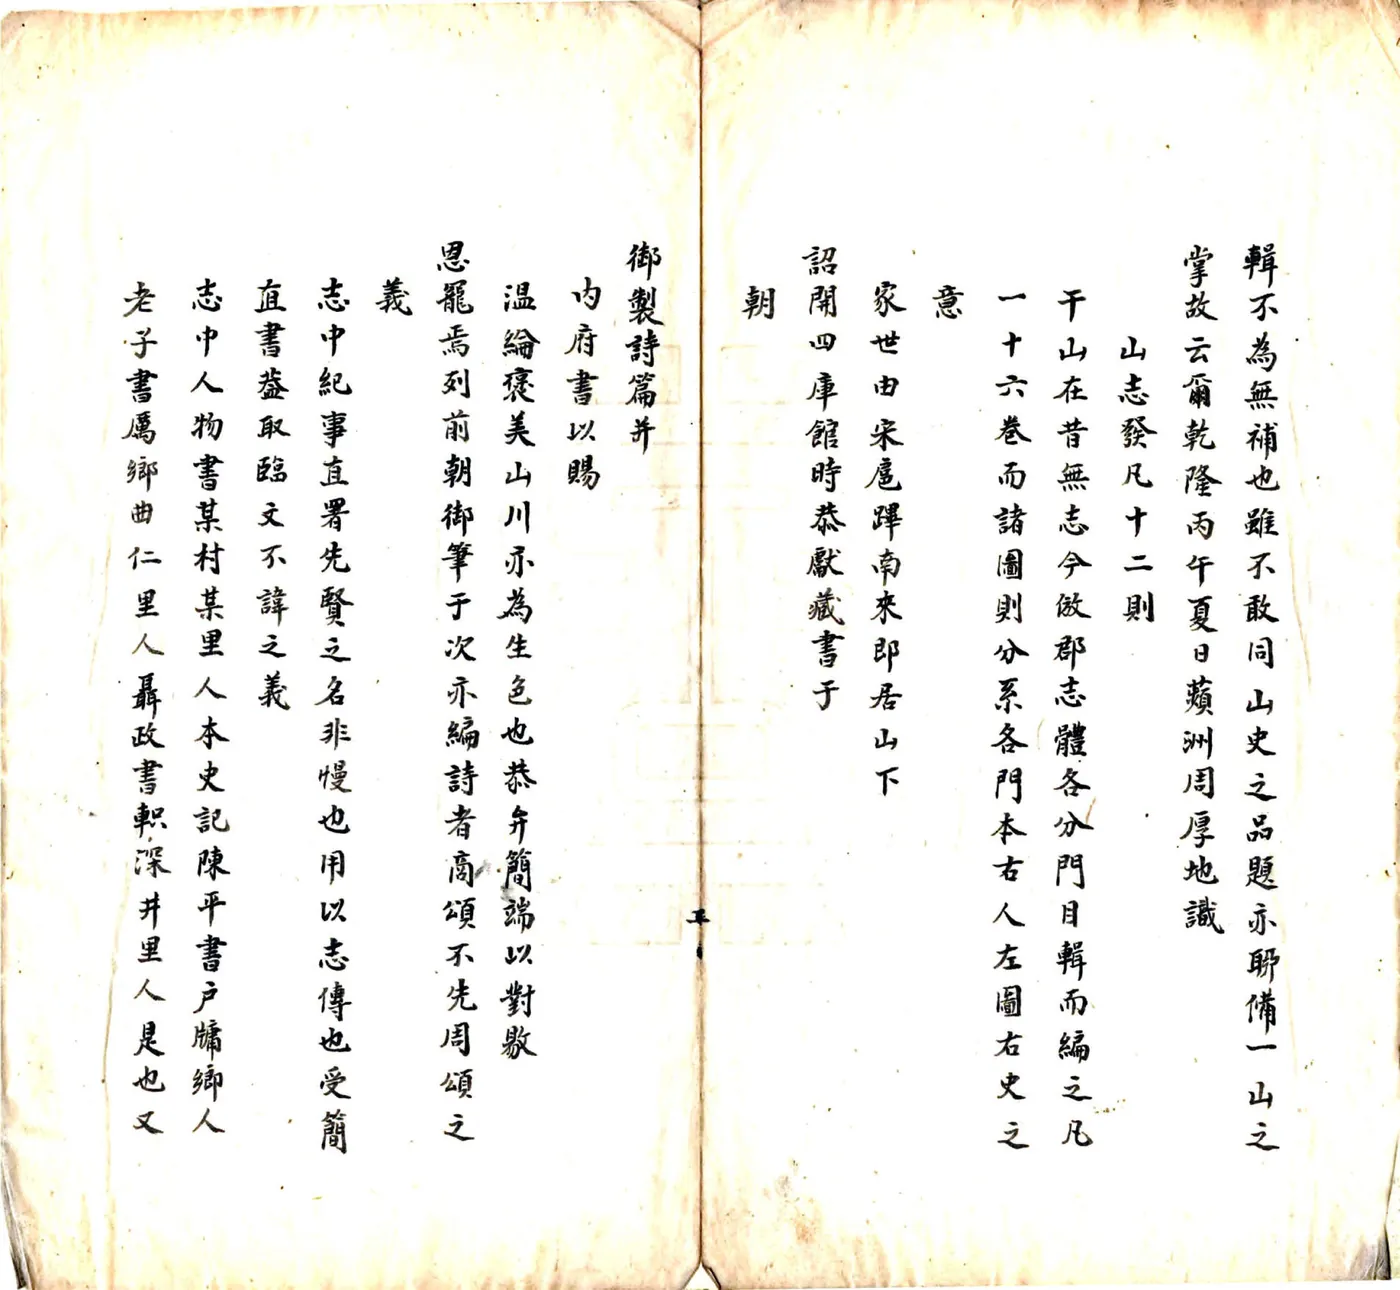 輯不為無補也雖不敢同山史之品題亦聊備一山之
掌故云爾乾隆丙午夏日蘋洲周厚地識
山志發凡十二則
干山在昔無志今倣郡志體各分門目輯而編之凡
一十六卷而諸圖則分系各門本右人左圖右史之
意
家世由宋扈蹕南來即居山下
詔開四庫館時恭獻藏書于
朝
御製詩篇并
內府書以賜
溫綸褒美山川亦為生色也恭弁簡端以對敭
恩寵焉列前朝御筆于次亦編詩者商頌不先周頌之
義
志中紀事直署先賢之名非慢也用以志傳也受簡
直書葢取臨文不諱之義
志中人物書某村某里人本史記陳平書戶牖鄉人
老子書厲鄉曲仁里人聶政書軹深井里人是也又